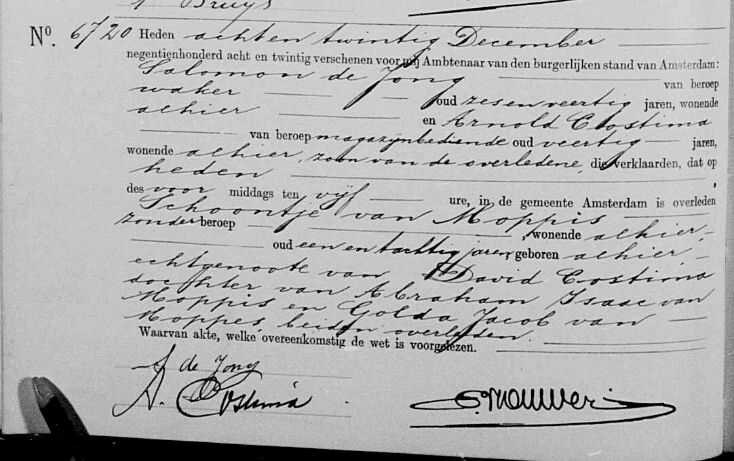 Bruijs
No. 6720 Heden achten twintig December
negentienhonderd acht en twintig verschenen voor mij Ambtenaar van den burgerlijken stand van Amsterdam:
Salomon de Jong van beroep
waker oud zesenveertig jaren, wonende
alhier en Arnold Costima
van beroep magazijnbediende oud veertig jaren,
wonende alhier, zoon van de overledene, die verklaarden, dat op
heden
des voor middags ten vijf ure, in de gemeente Amsterdam is overleden
Schoontje van Moppis
zonder beroep , wonende alhier,
oud een en tachtig jaren, geboren alhier,
echtgenoote van David Costima
dochter van Abraham Isaac van
Moppis en Golda Jacob van
Moppes, beiden overleden.
Waarvan akte, welke overeenkomstig de wet is voorgelezen.
S de Jong
A. Costima